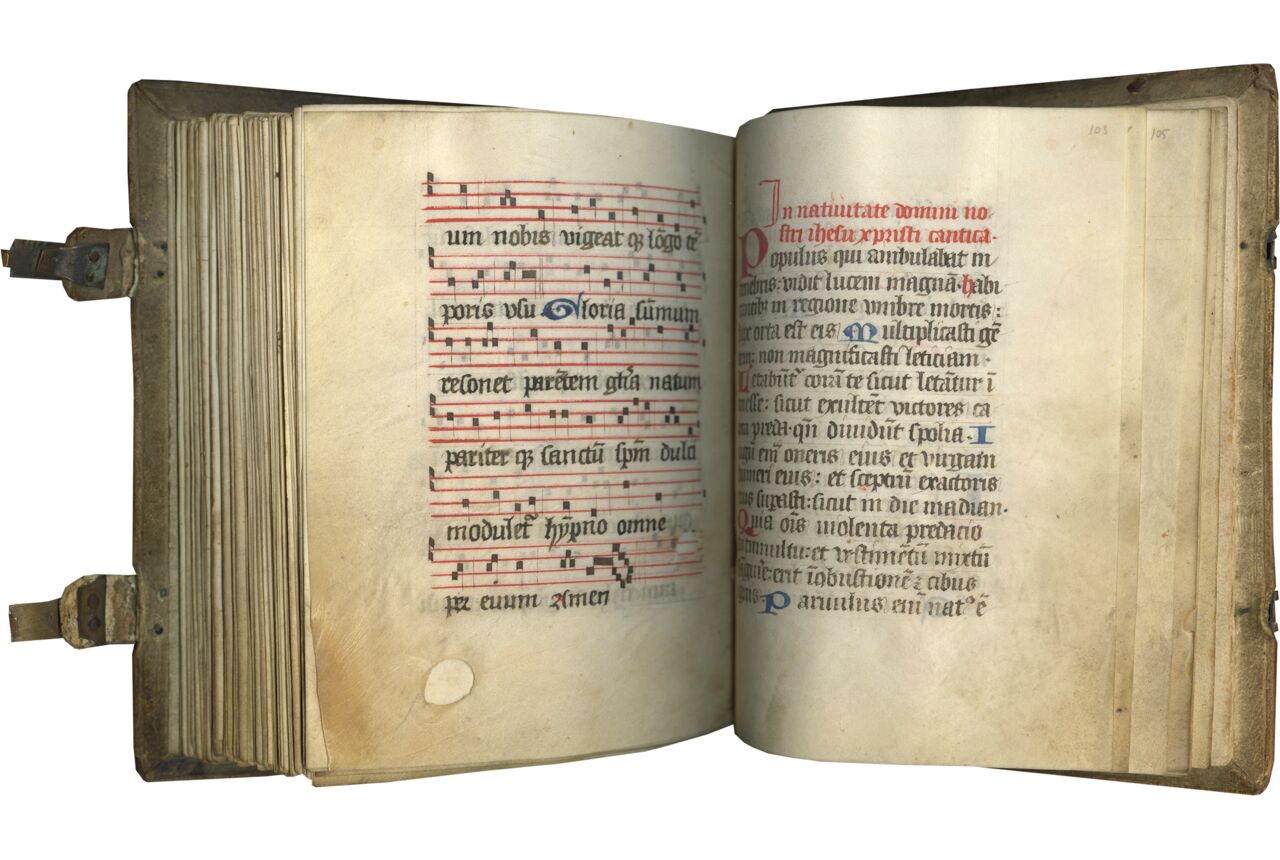 um nobis vigeat qꝫ lōgo tē
poris vsu Gloria sūmum
resonet parētem gl̄ia natum
pariter qꝫ sanctū sp̄m dulci
modulet᷑ hÿpno omne
per euum Amen
103 105
In natiuitate domini no-
stri ihesu xpristi cantica.
Populus qui ambulabat in
tenebris: vidit lucem magnā. habi
in regione vmbre mortis:
orta est eis Multiplicasti gē
non magnificasti leticiam.
Letabūt᷑ corā te sicut letāt̄ur ī
messe: sicut exultēt victores ca
preda. qn̄ diuidūt spolia. I
eim̄ oneris eius et virgam
humeri eius: et sceptrū exactoris
suꝑasti: sicut in die madian.
Quia oīs violenta predacio
tumultu: et vestimētū mixtū
erit ī ꝯbustionē ⁊ cibus
Paruulus eim̄ natꝰ ē